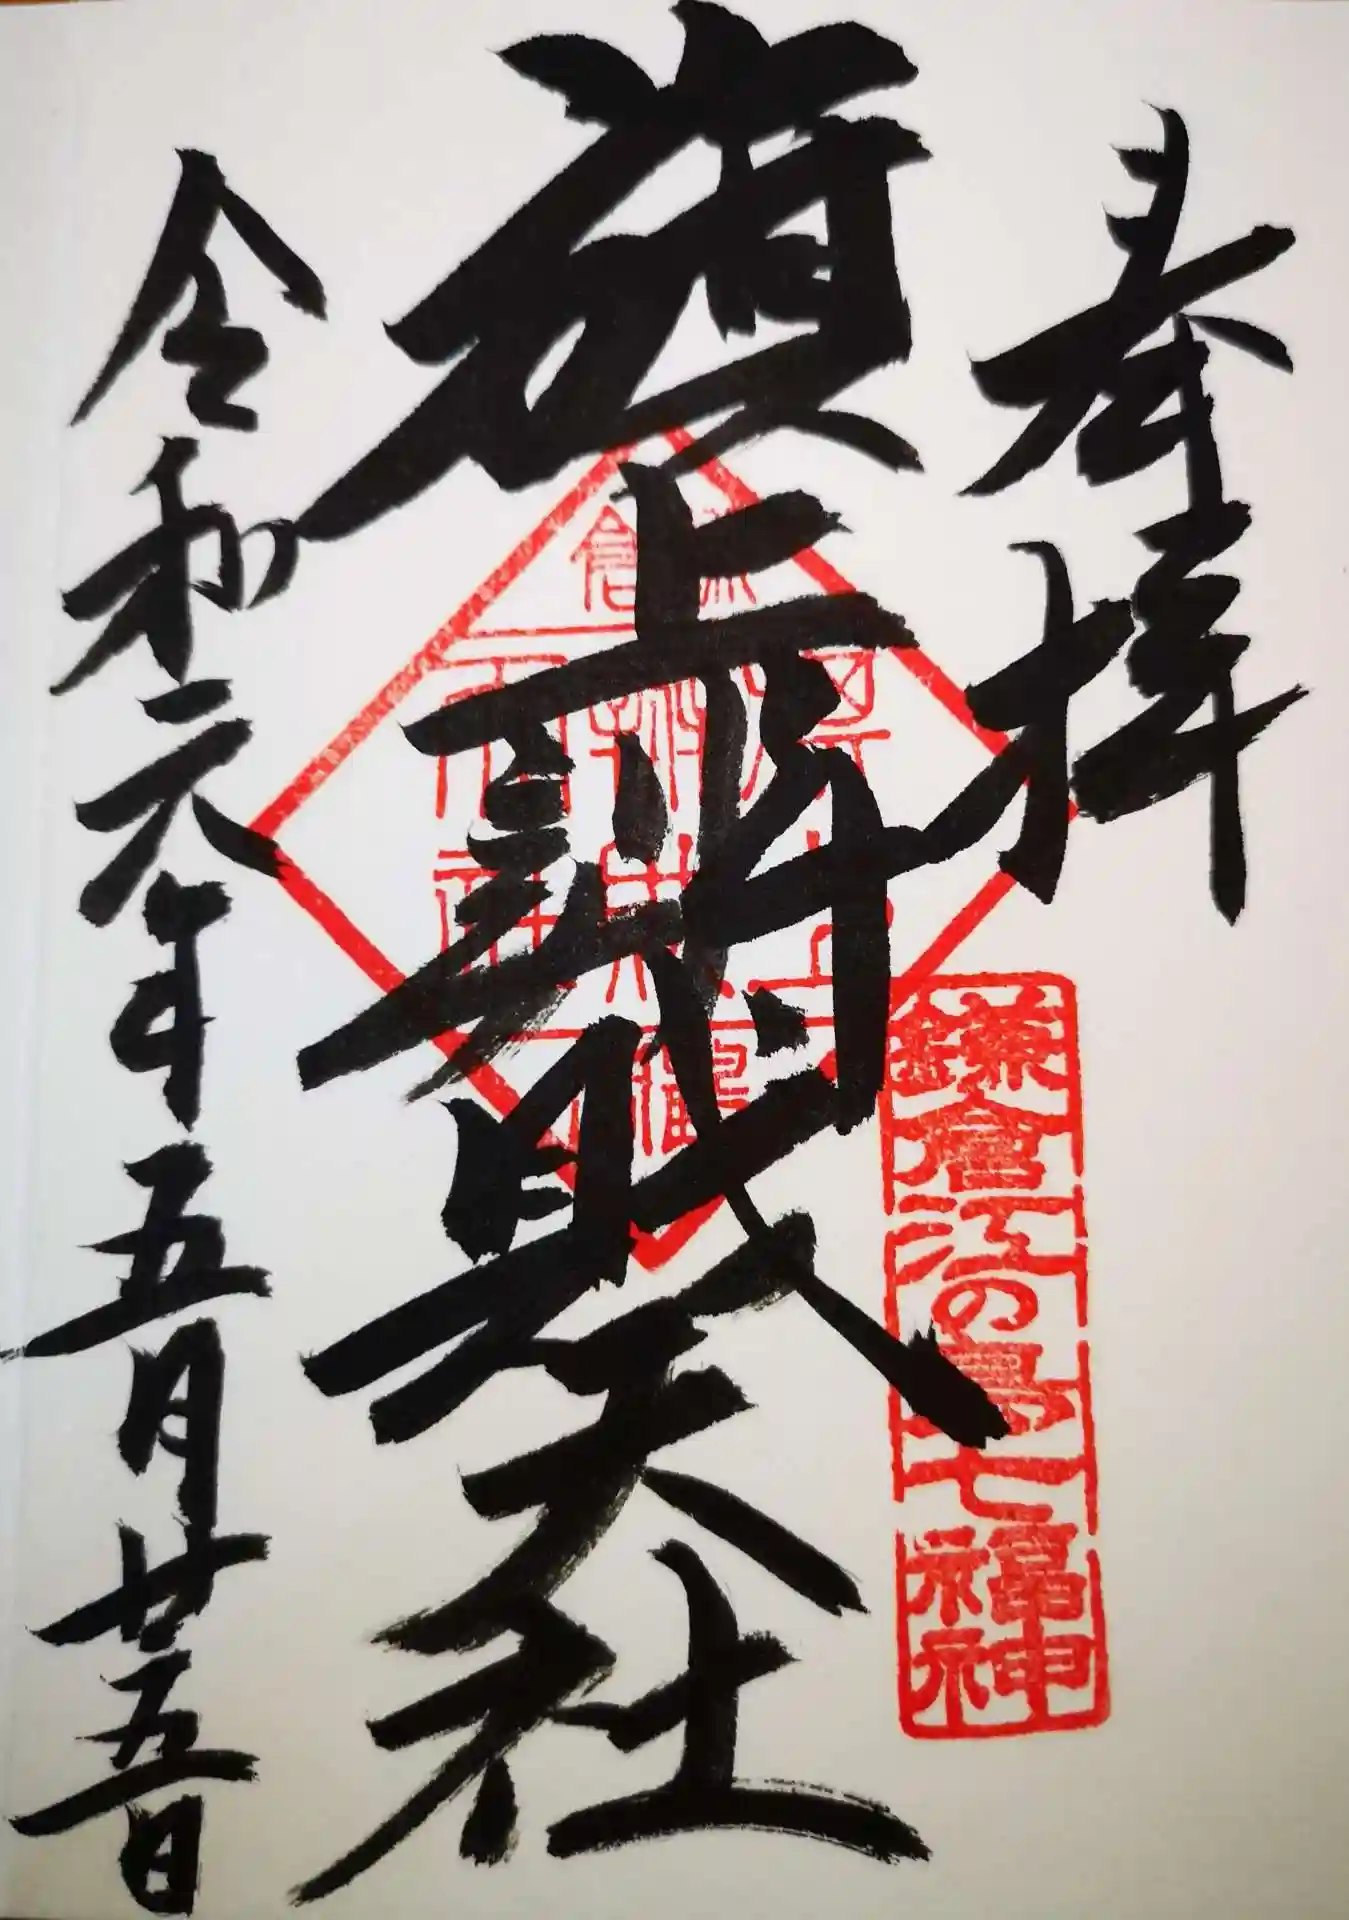 奉拝
鎌倉江の島七福神
旗上辨財天社
令和元年五月廿五日